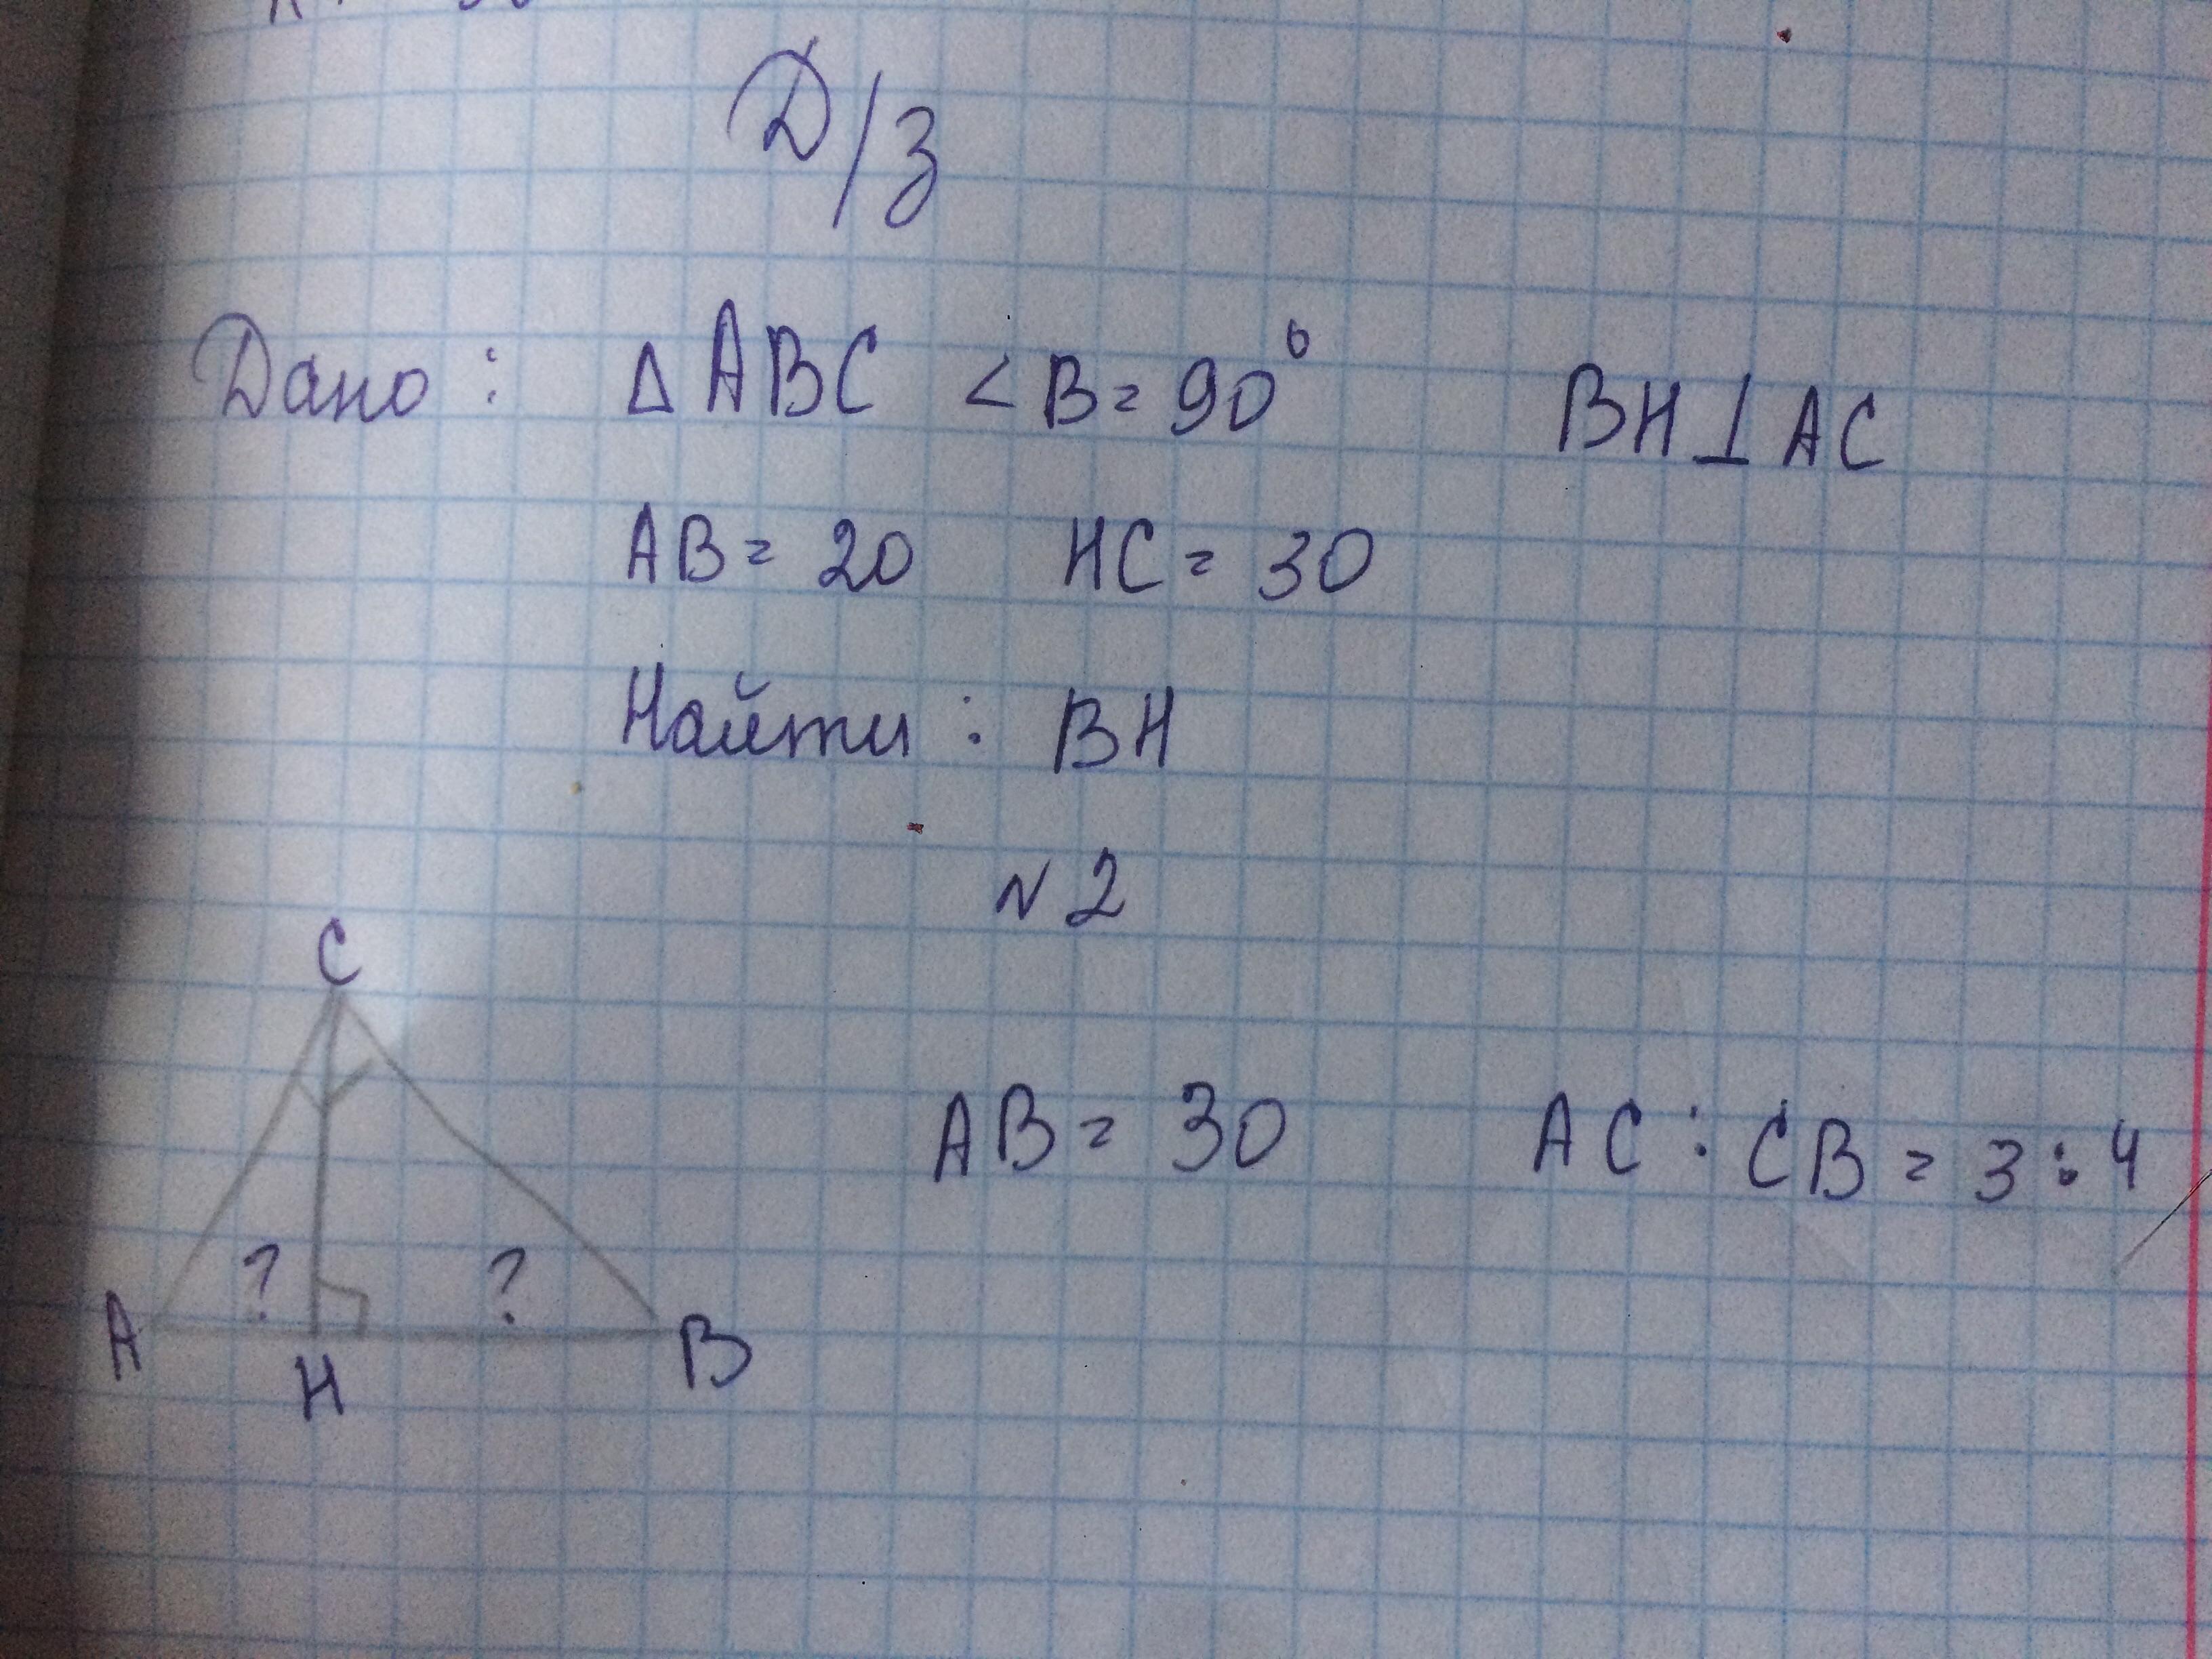 Д/з
Дано: Δ ABC < B = 90° BH ⊥ AC
AB = 20 HC = 30
Найти: BH
N 2
C
AB = 30 AC : CB = 3 : 4
? ?
A H B